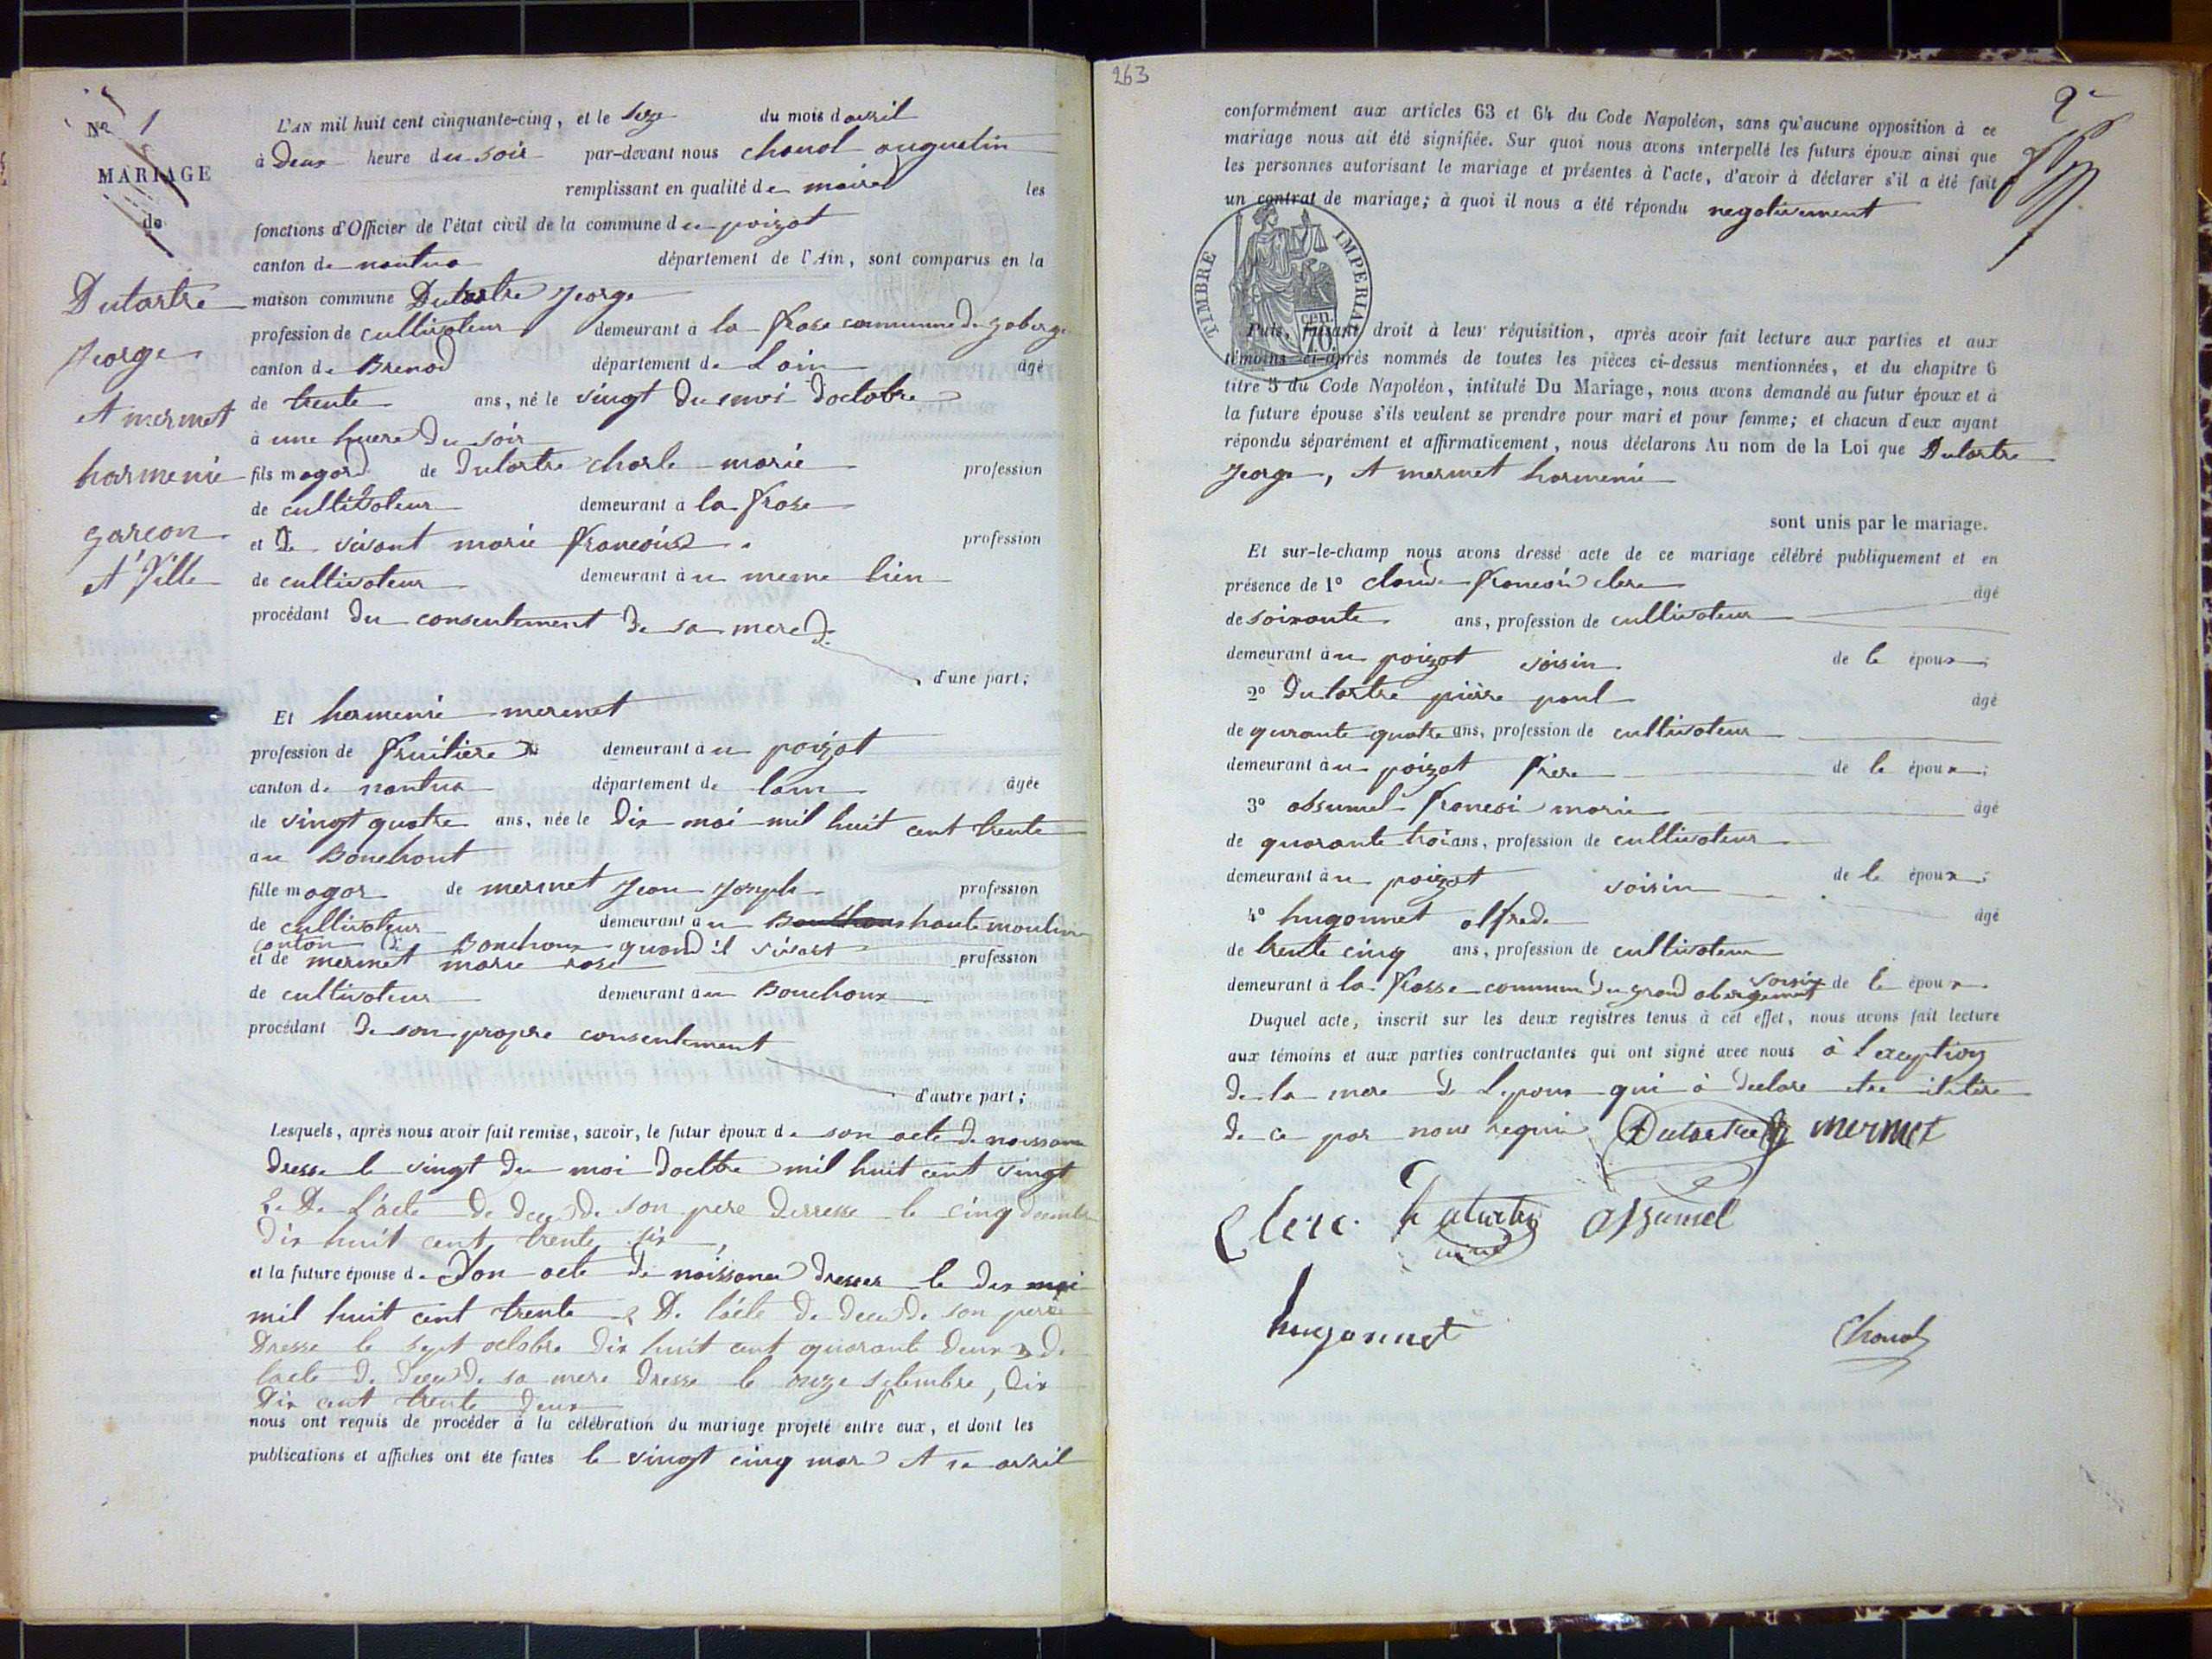 Nº 1
MARIAGE
de
Dutartre
george
et mermet
harmenie
garcon
et fille
L'AN mil huit cent cinquante-cinq, et le seize du mois d'avril
à Deux heure du soir par-devant nous chanal augustin
remplissant en qualité de maire les
fonctions d'Officier de l'état civil de la commune du poizat
canton de nantua département de l'Ain, sont comparus en la
maison commune Dutartre george
profession de cultivateur demeurant à la frase commune du
canton de Brenod département de Lain âgé
de trente ans, né le vingt du moi doctobre
à une huere du soir
fils magor de Dutartre charle marie profession
de cultivateur demeurant à la frase
et de vivant marie francoise profession
de cultivateur demeurant au meme lieu
procédant du consentement de sa mere
d'une part;
Et harmenie mermet
profession de fruitiere demeurant au poizat
canton de nantua département de lain âgée
de vingt quatre ans, née le Dix mai mil huit cent trente
au Bouchout
fille magor de mermet Jean Joseph profession
de cultivateur demeurant au haute mouline
canton de Bouchoux quand il vivait
et de mermet marie rose profession
de cultivateur demeurant au Bouchoux
procédant De son propre consentement
d'autre part;
Lesquels, après nous avoir fait remise, savoir, le futur époux de son acte de naissance
dresse le vingt du moi doctbre mil huit cent vingt
2e De l'acte de deces de son pere le cinq
dix huit cent trente six,
et la future épouse de Son acte de naissance dresser le dix mai
mil huit cent trente 2 De l'acte de deces de son pere
Dresse le sept octobre dix huit cent quarante deux 3 de
lacte de deces de sa mere dresse le onze setembre, dix
Dix cent trente deux
nous ont requis de procéder à la célébration du mariage projeté entre eux, et dont les
publications et affiches ont été faites le vingt cinq mars et avril
263
2e
conformément aux articles 63 et 64 du Code Napoléon, sans qu'aucune opposition à ce
mariage nous ait été signifiée. Sur quoi nous avons interpellé les futurs époux ainsi que
les personnes autorisant le mariage et présentes à l'acte, d'avoir à déclarer s'il a été fait
un contrat de mariage; à quoi il nous a été répondu negativement
TIMBRE IMPERIAL
cen.
70.
Puis, faisant droit à leur réquisition, après avoir fait lecture aux parties et aux
témoins ci-après nommés de toutes les pièces ci-dessus mentionnées, et du chapitre 6
titre 5 du Code Napoléon, intitulé Du Mariage, nous avons demandé au futur époux et à
la future épouse s'ils veulent se prendre pour mari et pour femme; et chacun d'eux ayant
répondu séparément et affirmativement, nous déclarons Au nom de la Loi que Dutartre
george, et mermet harmenie
sont unis par le mariage.
Et sur-le-champ nous avons dressé acte de ce mariage célébré publiquement et en
présence de 1º claude francois clerc âgé
de soixante ans, profession de cultivateur
demeurant au poizat voisin de le époux;
2º Dutartre pierre paul âgé
de qurante quatre ans, profession de cultivateur
demeurant au poizat frere de le époux;
3º assumel francoi marie âgé
de quarante troi ans, profession de cultivateur
demeurant au poizat voisin de le époux;
4º hugonnet alfrede âgé
de trente cinq ans, profession de cultivateur
demeurant à la frasse commun du grand abergement voisin de le époux.
Duquel acte, inscrit sur les deux registres tenus à cet effet, nous avons fait lecture
aux témoins et aux parties contractantes qui ont signé avec nous à l'exception
de la mere de l'epoux qui à declare etre
de ce par nous requi Dutartre g mermet
Clerc Dutartre assumel
hugonnet Chanal